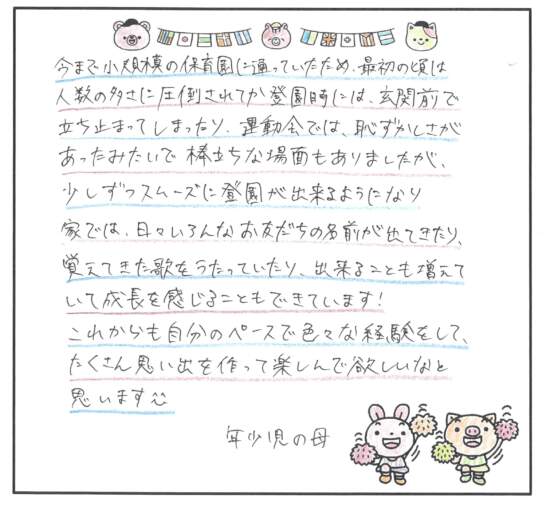 今まで小規模の保育園に通っていたため、最初の頃は
人数の多さに圧倒されてか登園時には、玄関前で
立ち止まってしまったり、運動会では、恥ずかしさが
あったみたいで棒立ちな場面もありましたが、
少しずつスムーズに登園が出来るようになり
家では、日々いろんなお友だちの名前が出てきたり、
覚えてきた歌をうたっていたり、出来ることも増えて
いて成長を感じることもできています!
これからも自分のペースで色々な経験をして、
たくさん思い出を作って楽しんで欲しいなと
思います
年少児の母